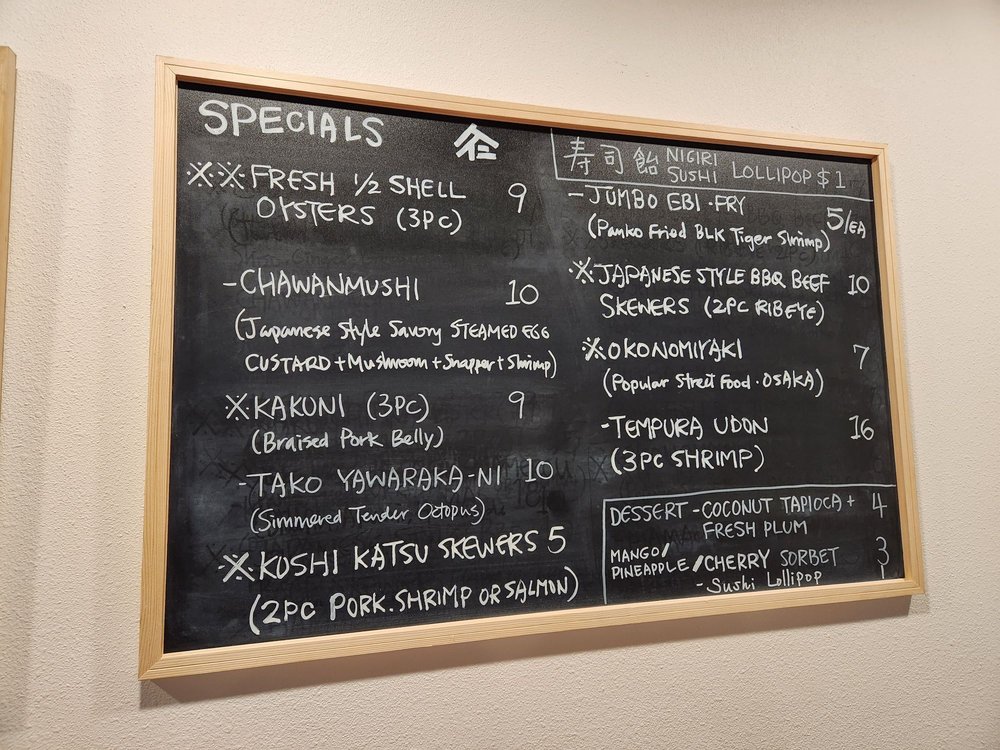 SPECIALS
※※FRESH 1/2 SHELL 9
OYSTERS (3PC)
-CHAWANMUSHI 10
(Japanese Style Savory STEAMED EGG
CUSTARD+Mushroom+Snapper+Shrimp)
※KAKUNI (3PC) 9
(Braised Pork Belly)
-TAKO YAWARAKA-NI 10
(Simmered Tender Octopus)
※KUSHI KATSU SKEWERS 5
(2PC PORK.SHRIMP OR SALMON)
寿司飴 NIGIRI SUSHI LOLLIPOP $1
-JUMBO EBI·FRY 5/EA
(Panko Fried BLK Tiger Shrimp)
※JAPANESE STYLE BBQ BEEF 10
SKEWERS (2PC RIBEYE)
※OKONOMIYAKI 7
(Popular Street Food·OSAKA)
-TEMPURA UDON 16
(3PC SHRIMP)
DESSERT-COCONUT TAPIOCA+ 4
FRESH PLUM
MANGO/
PINEAPPLE/CHERRY SORBET 3
-Sushi Lollipop 1